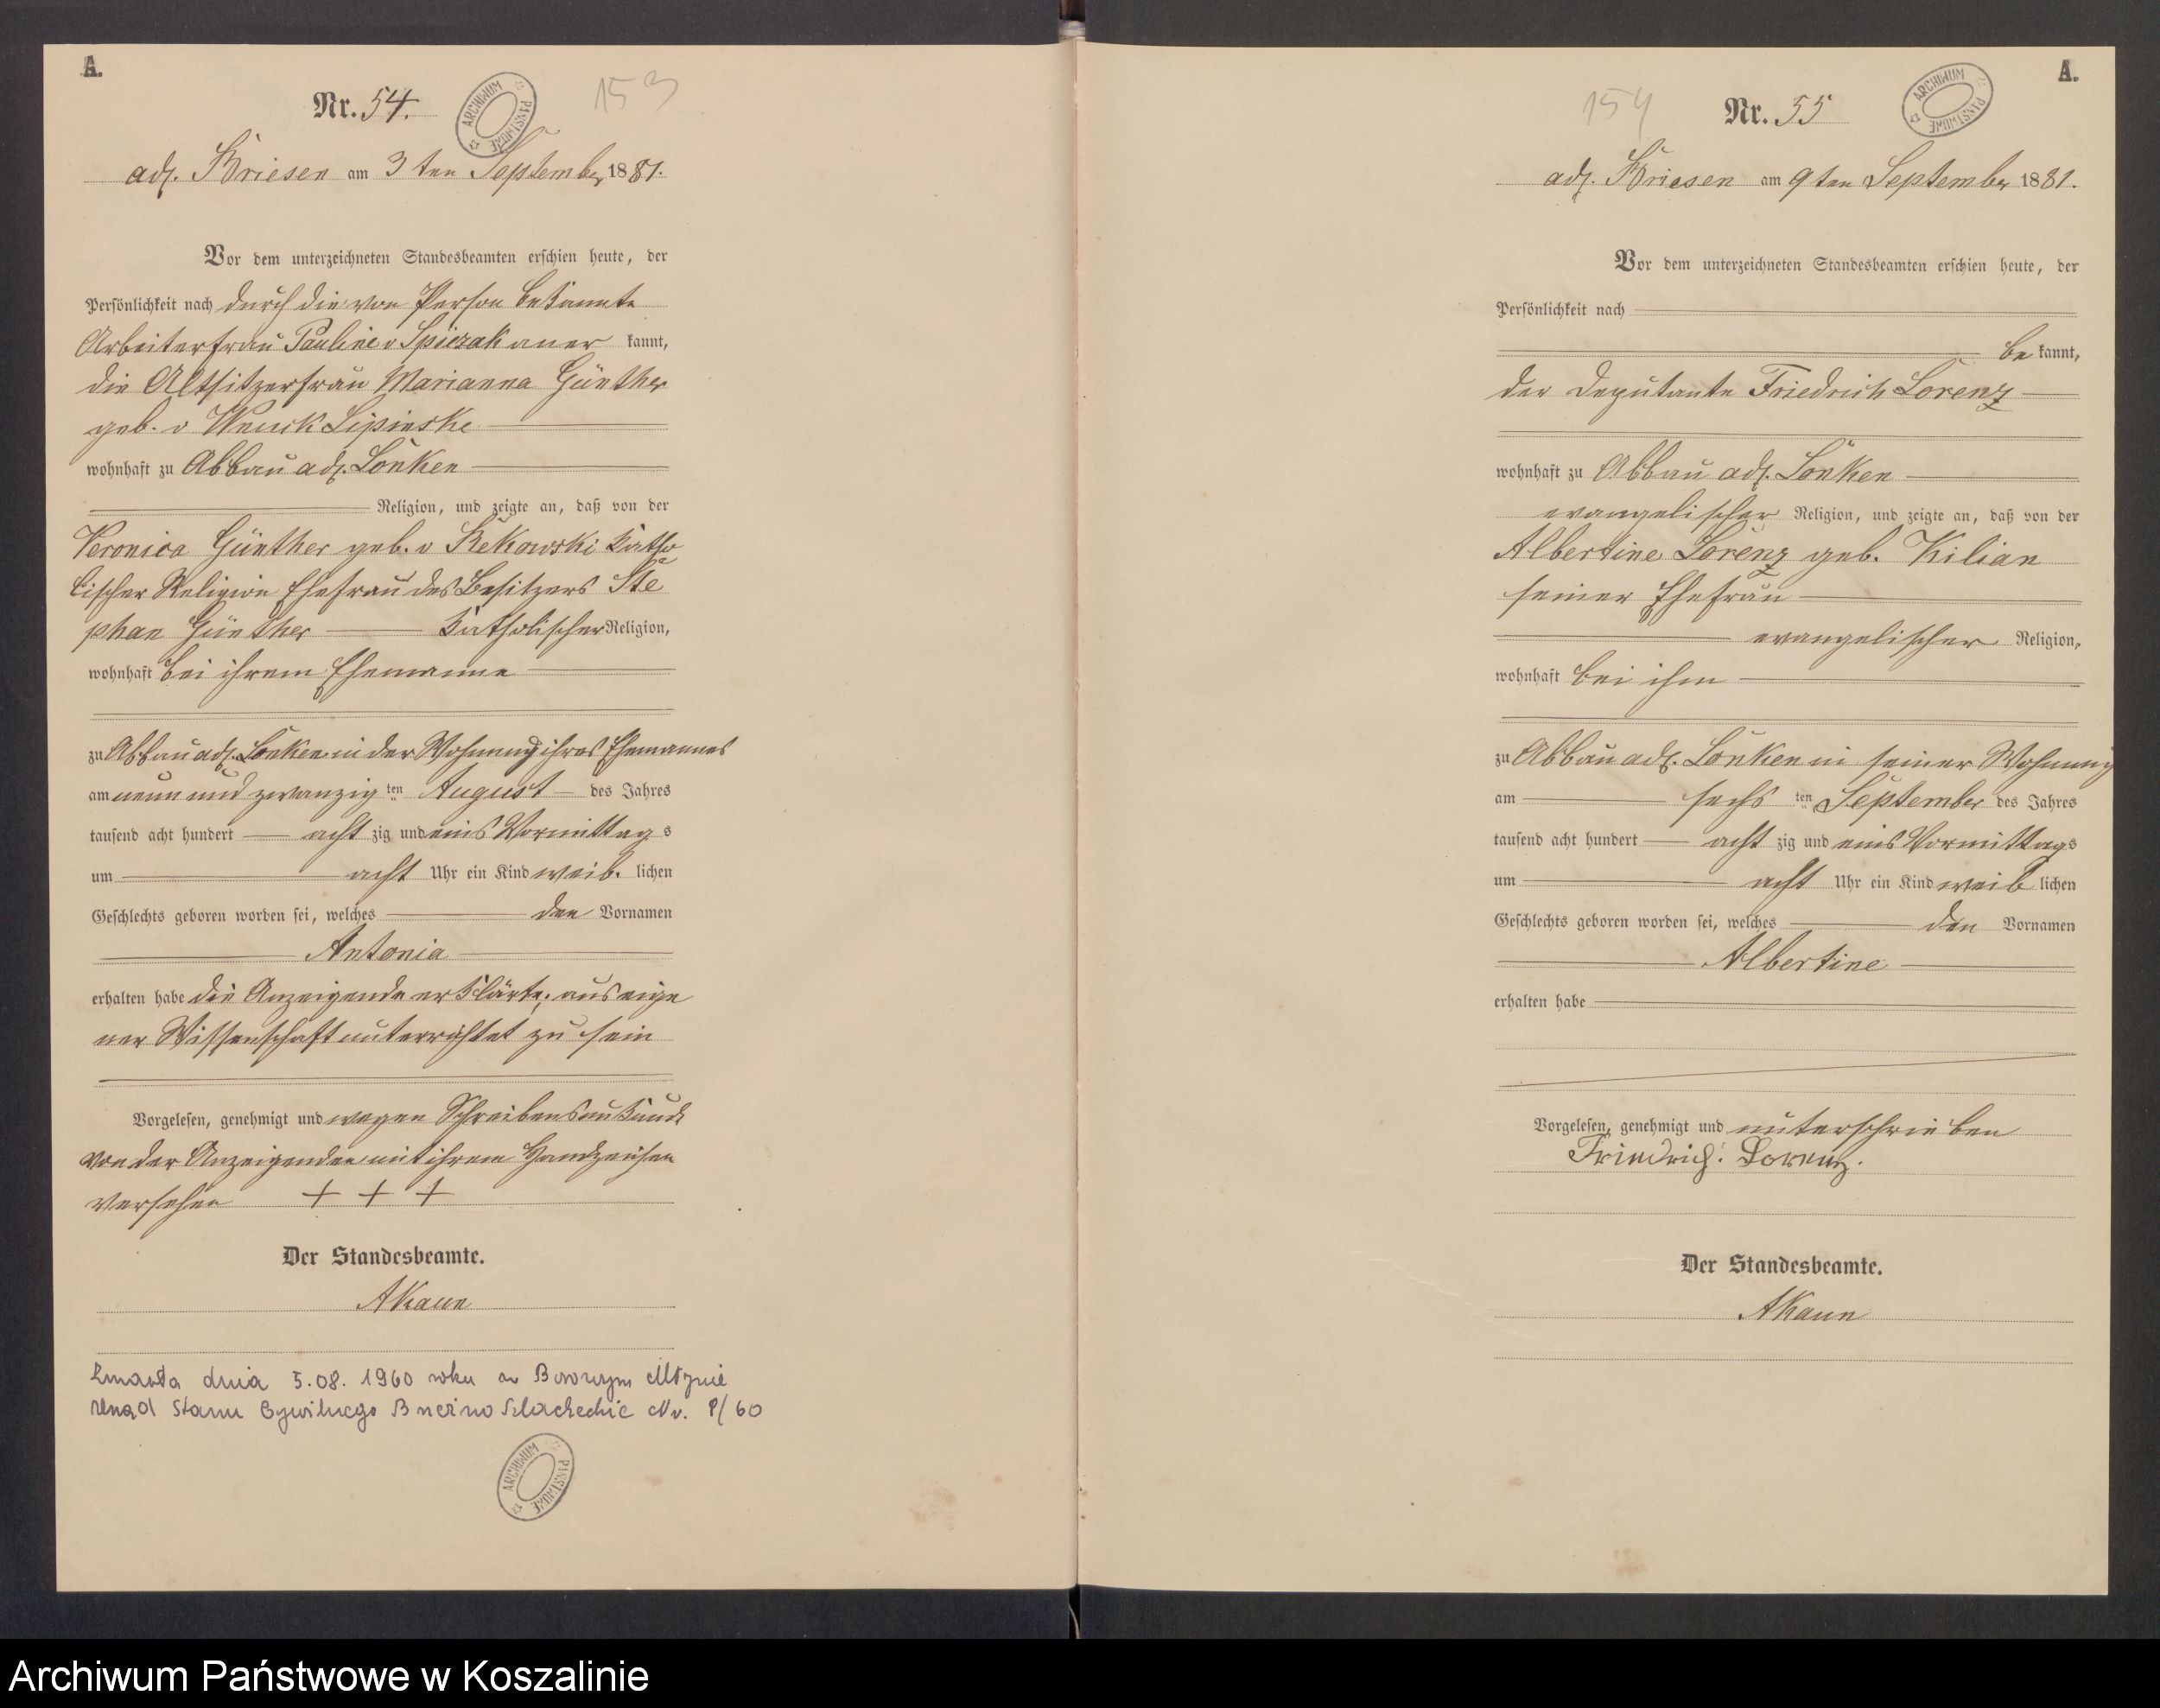 A.
Nr. 54.
153
ARCHIWUM PAŃSTWOWE
adl. Briesen am 3 ten September 1881.
Vor dem unterzeichneten Standesbeamten erschien heute, der
Persönlichkeit nach durch die von Person bekannte
Arbeiterfrau Pauline v Spiczak aner kannt,
die Altsitzerfrau Marianna Günther
geb. v Wnuck Lipinske
wohnhaft zu Abbau adl. Lonken
Religion, und zeigte an, daß von der
Veronica Günther geb. v Rekowski katho
lischer Religion Ehefrau des Besitzers Ste
phan Günther katholischer Religion,
wohnhaft bei ihrem Ehemanne
zu Abbau adl. Lonken in der Wohnung ihres Ehemannes
am neun und zwanzig ten August des Jahres
tausend acht hundert acht zig und eins Vormittags
um acht Uhr ein Kind weib. lichen
Geschlechts geboren worden sei, welches den Vornamen
Antonia
erhalten habe die Anzeigende erklärte, aus eige
ner Wissenschaft unterrichtet zu sein
Vorgelesen, genehmigt und wegen Schreibensunkunde
von der Anzeigenden mit ihrem Handzeichen
versehen + + +
Der Standesbeamte.
AKaun
Zmarła dnia 5.08.1960 roku w Borowym Młynie
Urząd Stanu Cywilnego Brzeźno Szlacheckie Nr. 8/60
ARCHIWUM PAŃSTWOWE
A.
154
Nr. 55
ARCHIWUM PAŃSTWOWE
adl. Briesen am 9 ten September 1881.
Vor dem unterzeichneten Standesbeamten erschien heute, der
Persönlichkeit nach
be kannt,
der Deputante Friedrich Lorenz
wohnhaft zu Abbau adl. Lonken
evangelischer Religion, und zeigte an, daß von der
Albertine Lorenz geb. Kilian
seiner Ehefrau
evangelischer Religion,
wohnhaft bei ihm
zu Abbau adl. Lonken in seiner Wohnung
am sechs ten September des Jahres
tausend acht hundert acht zig und eins Vormittags
um acht Uhr ein Kind weib lichen
Geschlechts geboren worden sei, welches den Vornamen
Albertine
erhalten habe
Vorgelesen, genehmigt und unterschrieben
Friedrich Lorenz.
Der Standesbeamte.
AKaun
Archiwum Państwowe w Koszalinie